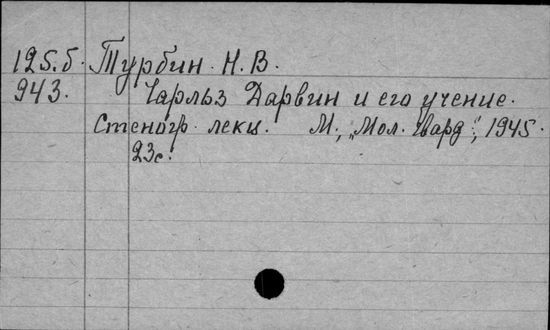 125.б. Турбин Н. В.
943. Чарльз Дарвин и его учение.
Стеногр. лекц. М., „Мол. Гвард.", 1945.
23с.